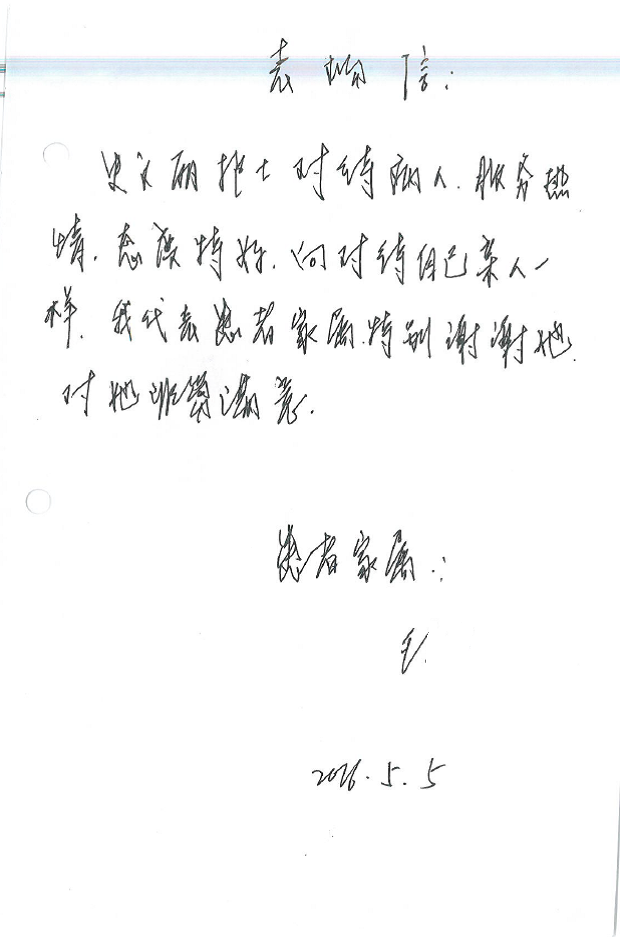 表扬信:
史文丽护士对待病人.服务热
情.态度特好.向对待自己亲人一
样.我代表患者家属.特别谢谢她.
对她非常满意.
患者家属:
王.
2016.5.5